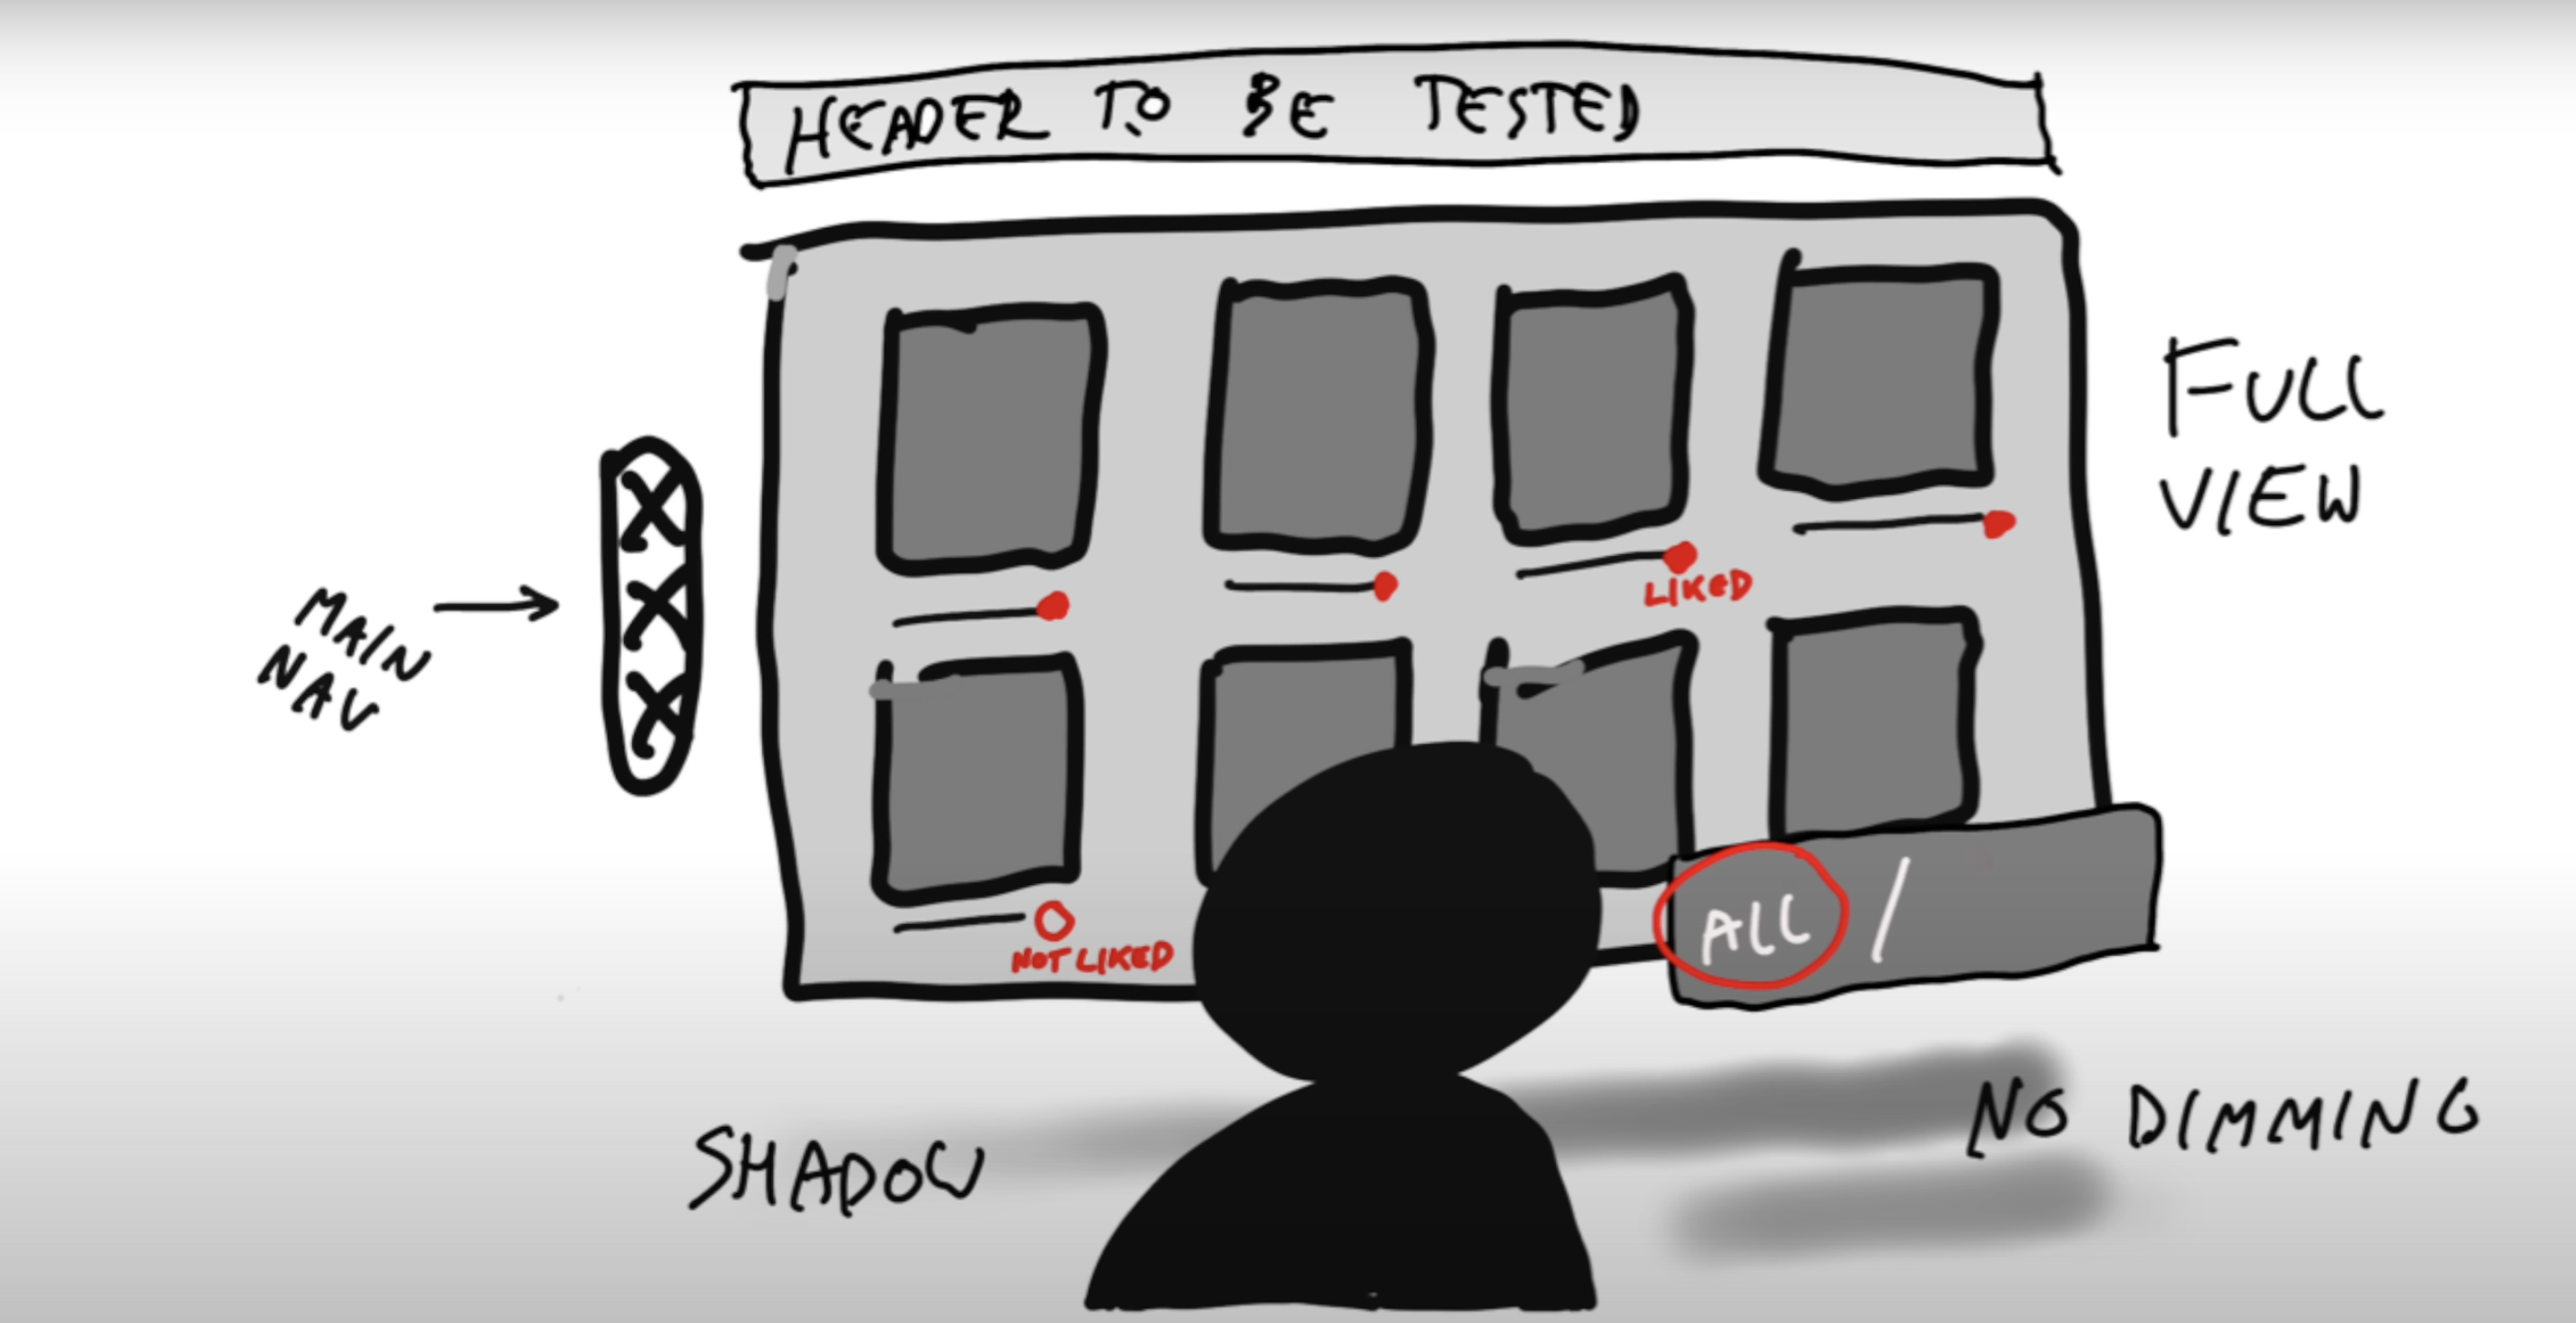 HEADER TO BE TESTED
FULL
VIEW
MAIN
NAV
LIKED
NOT LIKED
ALL /
SHADOW
NO DIMMING